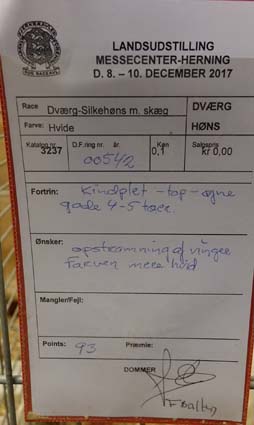 LANDSUDSTILLING
MESSECENTER-HERNING
D. 8. – 10. DECEMBER 2017
Race Dværg-Silkehøns m. skæg DVÆRG
Farve: Hvide HØNS
Katalog nr. D.F.ring nr. år. Køn Salgspris
3237 00542 0,1 kr 0,00
Fortrin: Kindplet - top - øgne
gode 4-5 tæer.
Ønsker: opstramning af vinger
Farven mere hvid
Mangler/Fejl:
Points: 93 Præmie:
DOMMER